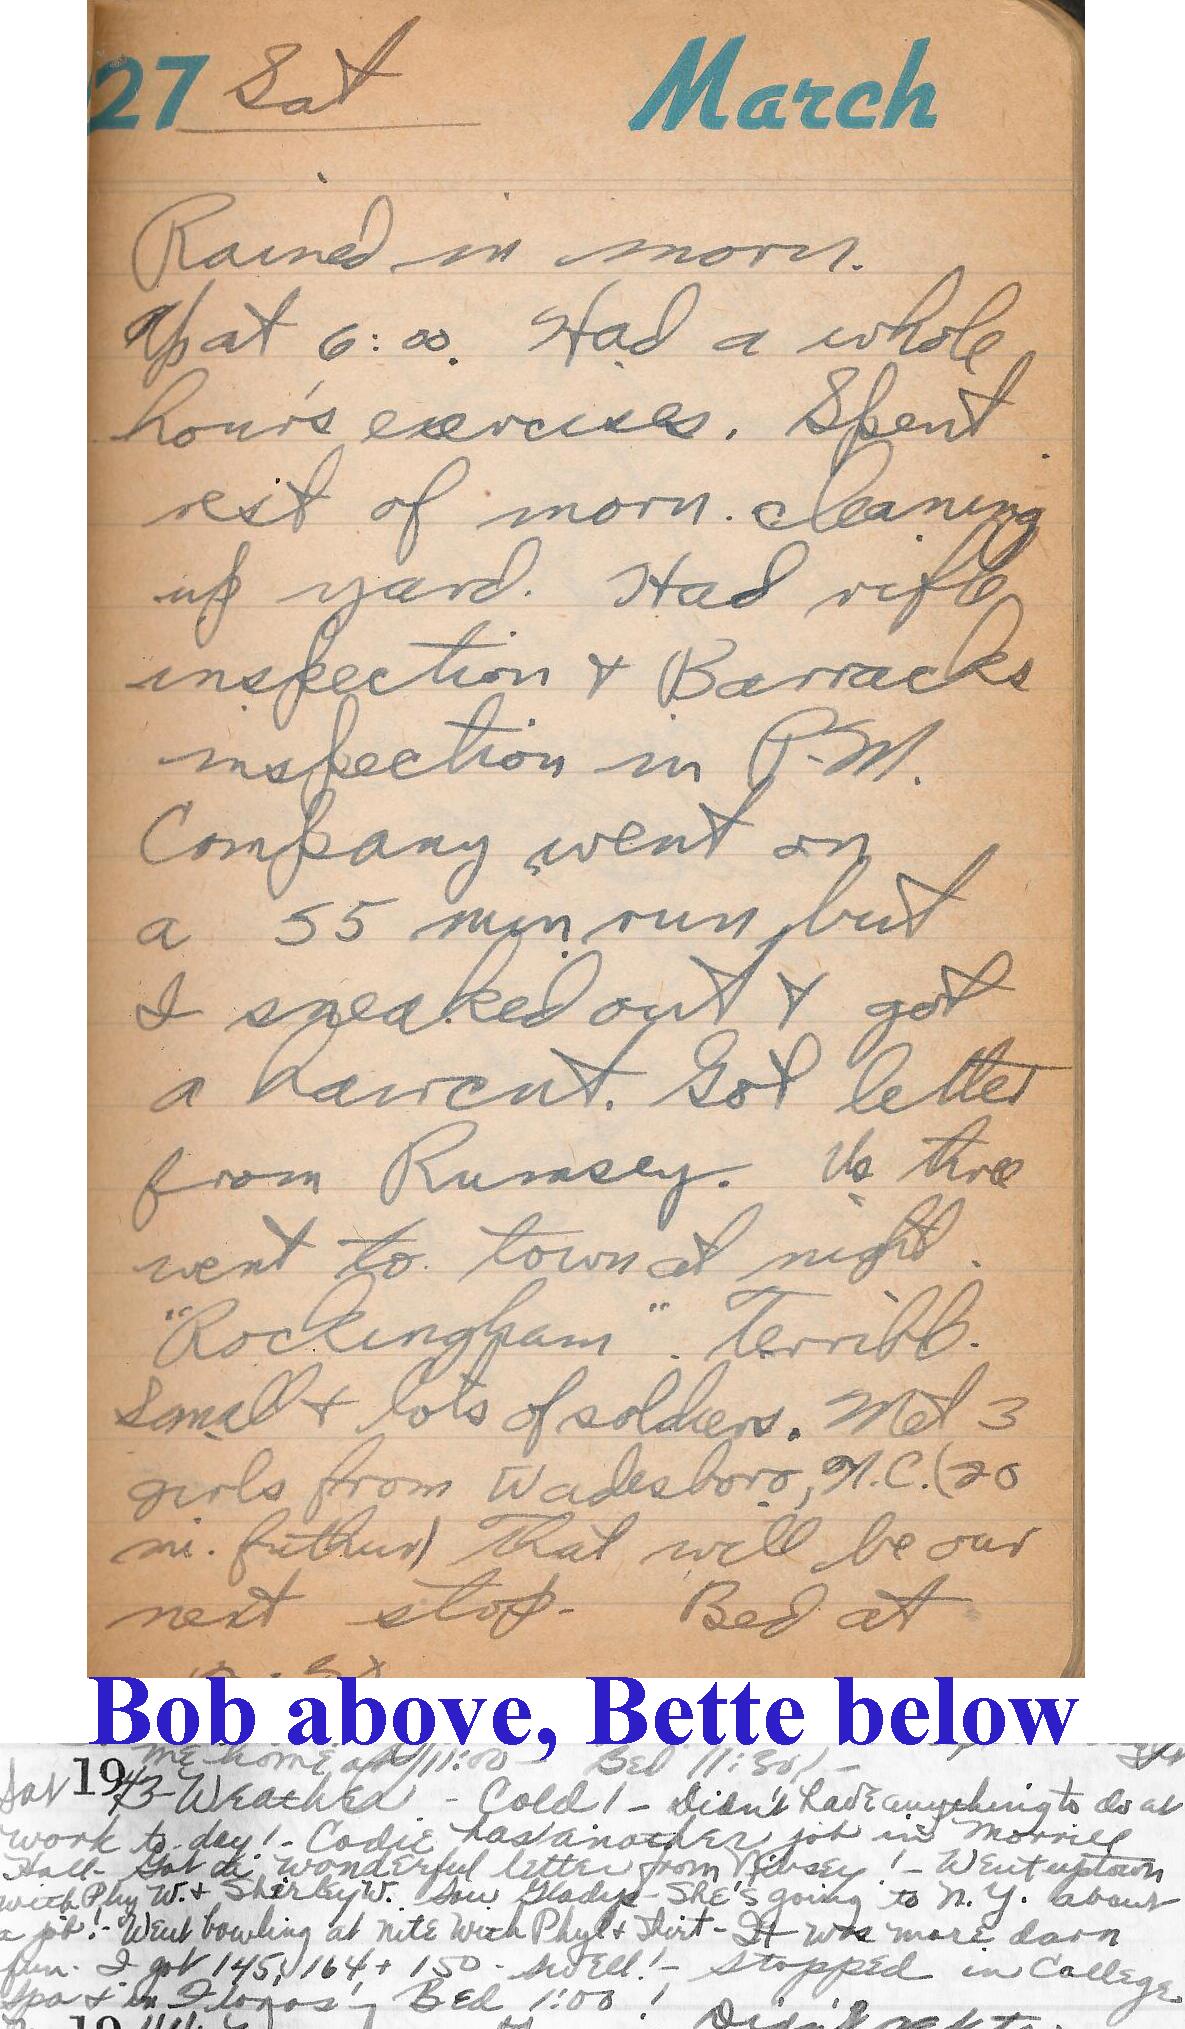 27 Sat March
Rained in morn.
Up at 6:00. Had a whole
hour's exercises. Spent
rest of morn. cleaning
up yard. Had rifle
inspection & Barracks
inspection in P.M.
Company went on
a 55 min run, but
I sneaked out & got
a haircut. Got letter
from Rumsey. Us three
went to town at night.
"Rockingham". Terrible.
Small & lots of soldiers. Met 3
girls from Wadesboro, N.C. (20
mi. futhur) That will be our
next stop. Bed at
Bob above, Bette below
me home at 11:00 - Bed 11:30! -
Sat 1943 - Weather - Cold! - Didn't have anything to do at
work to-day! - Codie has another job in Morrill
Hall - Got a wonderful letter from! - Went uptown
with Phy W. & Shirley W. Saw Gladys - She's going to N.Y. about
a job! - Went bowling at nite with Phyl & Shirt - It was more darn
fun. I got 145, 164 + 150 - swell! - stopped in College
Spa & in! Bed 1:00!
19